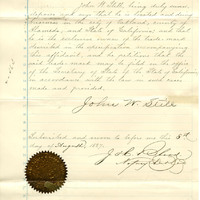 John W Stell being duly sworn
deposes and says that he is located and doing
business in the City of Oakland, County of
Alameda, and State of California; and that
he is the exclusive owner of the trade mark
described in the specification accompanying
this affidavit; and he petitions that the
said trade mark may be filed in the office
of the Secretary of State of the State of California
in accordance with the law in such case
made and provided.
John W. Stell
Subscribed and sworn to before me this 5th
day of August 1887.
Notary Public